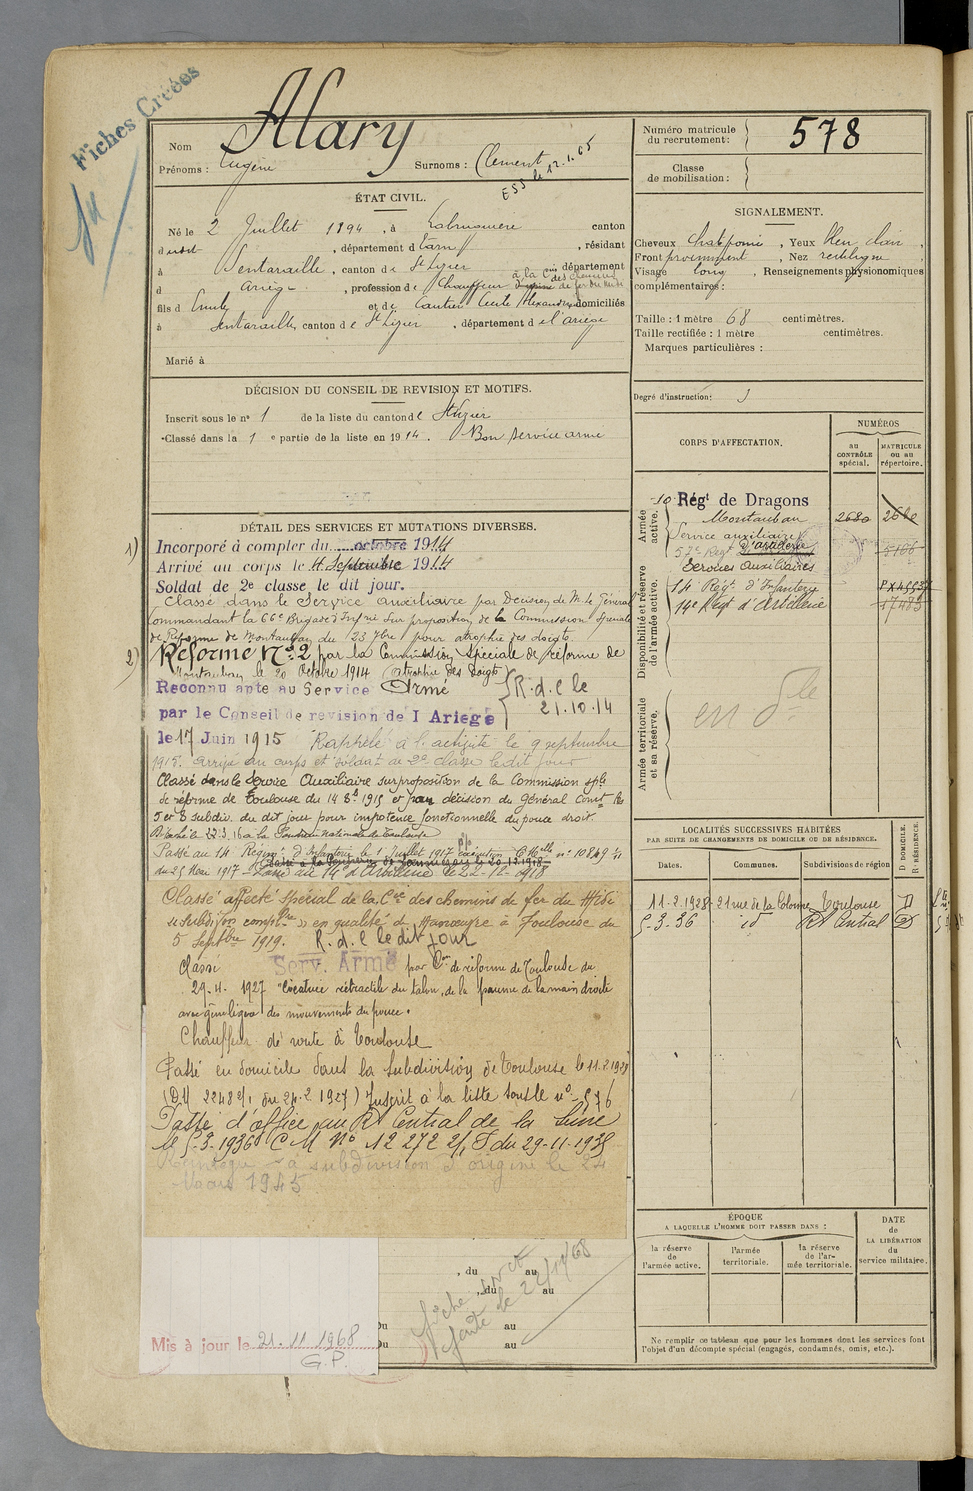 Fiches Créées
Nom Alary
Prénoms : Eugène Surnoms : Clément
ESS le 12.1.65
Numéro matricule du recrutement : 578
Classe de mobilisation :
ÉTAT CIVIL.
Né le 2 Juillet 1894, à Labruguière canton
dudit, département d Tarn, résidant
à Lentaraille, canton de St Lizier département
d Ariège, profession de Chauffeur à la Cie des chemins de fer du Midi
fils d Emile et de Cautier Cécile Alexandrine domiciliés
à Lentaraille, canton de St Lizier, département de l'Ariège
Marié à
SIGNALEMENT.
Cheveux chat foncé, Yeux bleu clair,
Front proéminent, Nez rectiligne,
Visage long, Renseignements physionomiques
complémentaires :
Taille : 1 mètre 68 centimètres.
Taille rectifiée : 1 mètre centimètres.
Marques particulières :
Degré d'instruction : 3
DÉCISION DU CONSEIL DE REVISION ET MOTIFS.
Inscrit sous le n° 1 de la liste du canton de St Lizier
Classé dans la 1 e partie de la liste en 1914. Bon service armé
CORPS D'AFFECTATION.
NUMÉROS
au CONTRÔLE spécial.
MATRICULE ou au répertoire.
Armée active.
10 Régt de Dragons 2680 2680
Montauban
Service auxiliaire
57e Regt d'artillerie
Services Auxiliaires
Disponibilité et réserve de l'armée active.
14 Régt d'Infanterie
14e Régt d'Artillerie 17485
Armée territoriale et sa réserve.
en dle
DÉTAIL DES SERVICES ET MUTATIONS DIVERSES.
1) Incorporé à compter du octobre 1914
Arrivé au corps le 4 Septembre 1914
Soldat de 2e classe le dit jour.
Classé dans le Service auxiliaire par Décision de M. le Général
Commandant la 66e Brigade d'Infrie sur proposition de la Commission spéciale
de Réforme de Montauban du 23 7bre pour atrophie des doigts.
2) Réformé No 2 par la Commission Spéciale de réforme de
Montauban le 20 Octobre 1914 atrophie des Doigts
Reconnu apte au Service Armé
par le Conseil de revision de l Ariege
R.d.c le 21.10.14
le 17 Juin 1915 Rappelé à l'activité le 9 septembre
1915. arrivé au corps et soldat de 2e classe le dit jour
Classé dans le Service Auxiliaire sur proposition de la Commission sple
de réforme de Toulouse du 14 8bre 1915 et par décision du Général Comt les
5 et 6 subdiv. du dit jour pour impotence fonctionnelle du pouce droit
Détaché le 22.3.16 à la Poudrerie Nationale de Toulouse
Passé au 14 Régimt d'Infanterie le 1 Juillet 1917 exécution C. Mlle n° 10849
du 25 Mai 1917 - Passé au 14e d'Artillerie le 22-12-1918
Classé affecté spécial de la Cie des chemins de fer du Midi
"subdivon complre" en qualité d Manœuvre à Toulouse du
5 Septbre 1919. R.d.c le dit jour
Classé Serv. Armé par Con de réforme de Toulouse du
29.4.1927 "Cicatrice rétractile du talon, de la paume de la main droite
avec gêne légère des mouvements du pouce.
Chauffeur de route à Toulouse
Passé en domicile dans la Subdivision de Toulouse le 11.2.1928
(DM 2248 2/1 du 24.2.1927) Inscrit à la liste sous le n° 576
Passé d'office au Rt Central de la Seine
le 5-3-1936 C M N° 12 272 2/1 du 29-11-1935
Réintègre sa subdivision d'origine le 24
Mars 1945
LOCALITÉS SUCCESSIVES HABITÉES
PAR SUITE DE CHANGEMENTS DE DOMICILE OU DE RÉSIDENCE.
Dates. Communes. Subdivisions de région D. DOMICILE. R. RÉSIDENCE.
11-2-1928 21 rue de la Colonne Toulouse D
5-3-36 id Rt Central D
ÉPOQUE
A LAQUELLE L'HOMME DOIT PASSER DANS :
la réserve de l'armée active.
l'armée territoriale.
la réserve de l'armée territoriale.
DATE de LA LIBÉRATION du service militaire.
Ne remplir ce tableau que pour les hommes dont les services font
l'objet d'un décompte spécial (engagés, condamnés, omis, etc.).
, du au
, du au
Du au
Du au
Mis à jour le 21.11.1968
G.P.